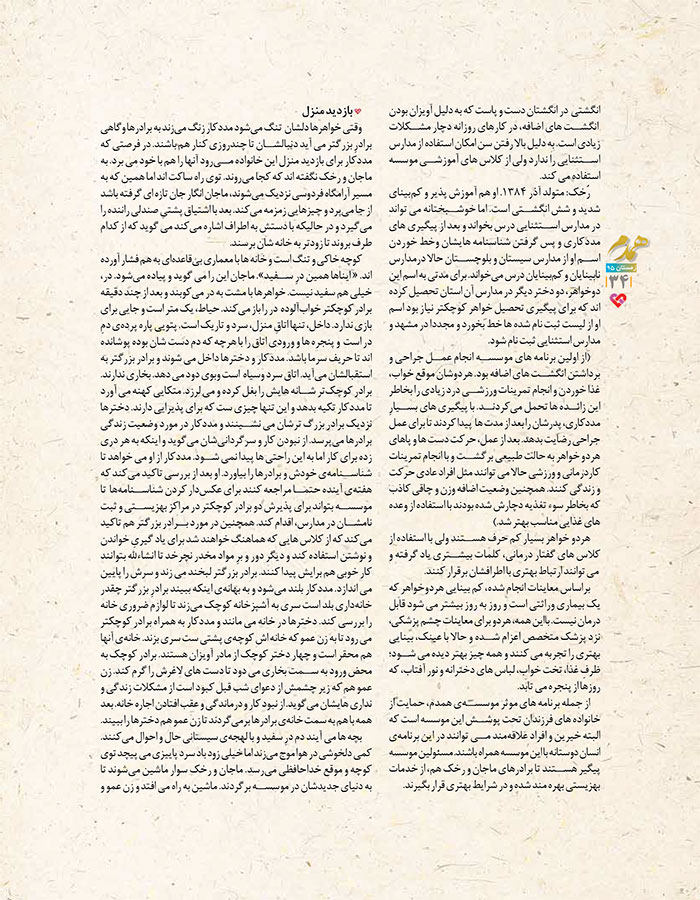 انگشتی در انگشتان دست و پاست که به دلیل آویزان بودن
انگشت های اضافه، در کارهای روزانه دچار مشکلات
زیادی است. به دلیل بالا رفتن سن امکان استفاده از مدارس
استثنایی را ندارد ولی از کلاس های آموزشی موسسه
استفاده می کند.
رُخک: متولد آذر ۱۳۸۴. او هم آموزش پذیر و کم‌بینای
شدید و شش انگشتی است. اما خوشبختانه می تواند
در مدارس استثنایی درس بخواند و بعد از پیگیری های
مددکاری و پس گرفتن شناسنامه هایشان و خط خوردن
اسم او از مدارس سیستان و بلوچستان حالا در مدارس
نابینایان و کم‌بینایان درس می‌خواند. برای مدتی به اسم این
دو خواهر، دو دختر دیگر در مدارس آن استان تحصیل کرده
اند که برای پیگیری تحصیل خواهر کوچکتر نیاز بود اسم
او از لیست ثبت نام شده ها خط بخورد و مجددا در مشهد و
مدارس استثنایی ثبت نام شود.
(از اولین برنامه های موسسه انجام عمل جراحی و
برداشتن انگشت های اضافه بود. هر دوشان موقع خواب،
غذا خوردن و انجام تمرینات ورزشی درد زیادی را بخاطر
این زائده ها تحمل می کردند. با پیگیری های بسیار
مددکاری، پدرشان را بعد از مدت ها پیدا کردند تا برای عمل
جراحی رضایت بدهد. بعد از عمل، حرکت دست ها و پاهای
هر دو خواهر به حالت طبیعی برگشت و با انجام تمرینات
کاردرمانی و ورزشی حالا می توانند مثل افراد عادی حرکت
و زندگی کنند. همچنین وضعیت اضافه وزن و چاقی کاذب
که بخاطر سوء تغذیه دچارش شده بودند با استفاده از وعده
های غذایی مناسب بهتر شد.)
هر دو خواهر بسیار کم حرف هستند ولی با استفاده از
کلاس های گفتار درمانی، کلمات بیشتری یاد گرفته و
می توانند ارتباط بهتری با اطرافشان برقرار کنند.
بر اساس معاینات انجام شده، کم بینایی هر دو خواهر که
یک بیماری وراثتی است و روز به روز بیشتر می شود قابل
درمان نیست. با این همه، هر دو برای معاینات چشم پزشکی،
نزد پزشک متخصص اعزام شده و حالا با عینک، بینایی
بهتری را تجربه می کنند و همه چیز بهتر دیده می شود؛
ظرف غذا، تخت خواب، لباس های دخترانه و نور آفتاب، که
روزها از پنجره می تابد.
از جمله برنامه های موثر موسسه‌ی همدم، حمایت از
خانواده های فرزندان تحت پوشش این موسسه است که
البته خیرین و افراد علاقه‌مند می توانند در این برنامه‌ی
انسان دوستانه با این موسسه همراه باشند. مسئولین موسسه
پیگیر هستند تا برادرهای ماجان و رخک هم، از خدمات
بهزیستی بهره مند شده و در شرایط بهتری قرار بگیرند.
بازدید منزل
وقتی خواهرها دلشان تنگ می‌شود مددکار زنگ می‌زند به برادرها و گاهی
برادر بزرگتر می آید دنبالشان تا چند روزی کنار هم باشند. در فرصتی که
مددکار برای بازدید منزل این خانواده می‌رود آنها را هم با خود می برد. به
ماجان و رخک نگفته اند که کجا می‌روند. توی راه ساکت اند اما همین که به
مسیر آرامگاه فردوسی نزدیک می‌شوند، ماجان انگار جان تازه ای گرفته باشد
از جا می‌پرد و چیزهایی زمزمه می کند. بعد با اشتیاق پشتی صندلی راننده را
می گیرد و در حالیکه با دستش به اطراف اشاره می کند می گوید که از کدام
طرف بروند تا زودتر به خانه شان برسند.
کوچه خاکی و تنگ است و خانه ها با معماری بی‌قاعده‌ای به هم فشار آورده
اند. «ایناها همین درِ سفید». ماجان این را می گوید و پیاده می‌شود. در،
خیلی هم سفید نیست. خواهرها با مشت به در می کوبند و بعد از چند دقیقه
برادر کوچکتر خواب‌آلوده در را باز می‌کند. حیاط، یک متر است و جایی برای
بازی ندارد. داخل، تنها اتاقِ منزل، سرد و تاریک است. پتویی پاره پرده‌ی دم
در است و پنجره ها و ورودی اتاق را با هرچه که دم دست شان بوده پوشانده
اند تا حریف سرما باشد. مددکار و دخترها داخل می شوند و برادر بزرگتر به
استقبالشان می آید. اتاق سرد و سیاه است و بوی دود می دهد. بخاری ندارند.
برادر کوچک‌تر شانه هایش را بغل کرده و می لرزد. متکایی کهنه می آورد
تا مددکار تکیه بدهد و این تنها چیزی ست که برای پذیرایی دارند. دخترها
نزدیک برادر بزرگ ترشان می نشینند و مددکار در مورد وضعیت زندگی
برادرها می‌پرسد. از نبودن کار و سرگردانی‌شان می گوید و اینکه به هر دری
زده برای کار اما به این راحتی ها پیدا نمی شود. مددکار از او می خواهد تا
شناسنامه‌ی خودش و برادرها را بیاورد. او بعد از بررسی تاکید می کند که
هفته‌ی آینده حتما مراجعه کنند برای عکس‌دار کردن شناسنامه‌ها تا
موسسه بتواند برای پذیرش دو برادر کوچکتر در مراکز بهزیستی و ثبت
نامشان در مدارس، اقدام کند. همچنین در مورد برادر بزرگتر هم تاکید
می کند که از کلاس هایی که هماهنگ خواهند شد برای یادگیری خواندن
و نوشتن استفاده کند و دیگر دور و برِ مواد مخدر نچرخد تا انشاءالله بتوانند
کار خوبی هم برایش پیدا کنند. برادر بزرگتر لبخند می زند و سرش را پایین
می اندازد. مددکار بلند می شود و به بهانه‌ی اینکه ببیند برادر بزرگتر چقدر
خانه‌داری بلد است سری به آشپزخانه کوچک می‌زند تا لوازم ضروری خانه
را بررسی کند. دخترها در خانه می مانند و مددکار به همراه برادر کوچکتر
می رود تا به زن عمو که خانه اش کوچه‌ی پشتی ست سری بزند. خانه‌ی آنها
هم محقر است و چهار دختر کوچک از مادر آویزان هستند. برادر کوچک به
محض ورود به سمت بخاری می دود تا دست های لاغرش را گرم کند. زن
عمو هم که زیر چشمش از دعوای شب قبل کبود است از مشکلات زندگی و
نداری هایشان می گوید. از نبود کار و درماندگی و عقب افتادن اجاره خانه. بعد
همه با هم به سمت خانه‌ی برادرها برمی گردند تا زن عمو هم دخترها را ببیند.
بچه ها می آیند دم درِ سفید و با لهجه‌ی سیستانی حال و احوال می کنند.
کمی دلخوشی در هوا موج می‌زند اما خیلی زود باد سرد پاییزی می پیچد توی
کوچه و موقع خداحافظی می‌رسد. ماجان و رخک سوار ماشین می‌شوند تا
به دنیای جدیدشان در موسسه برگردند. ماشین به راه می افتد و زن عمو و
همدم
زمستان ۹۵
۳۴